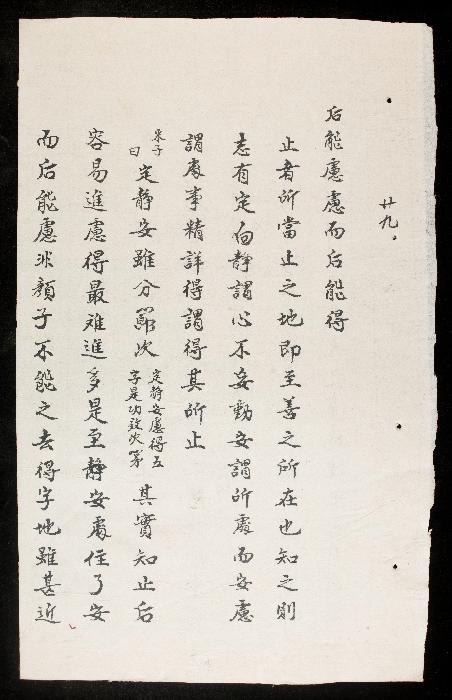 廿九.
后能慮慮而后能得
止者所當止之地即至善之所在也知之則
志有定向静謂心不妄動安謂所處而安慮
謂處事精詳得謂得其所止
朱子曰定静安雖分節次定静安慮得五字是功效次第其實知止后
容易進慮得最难進多是至静安處住了安
而后能慮非顏子不能之去得字地雖甚近